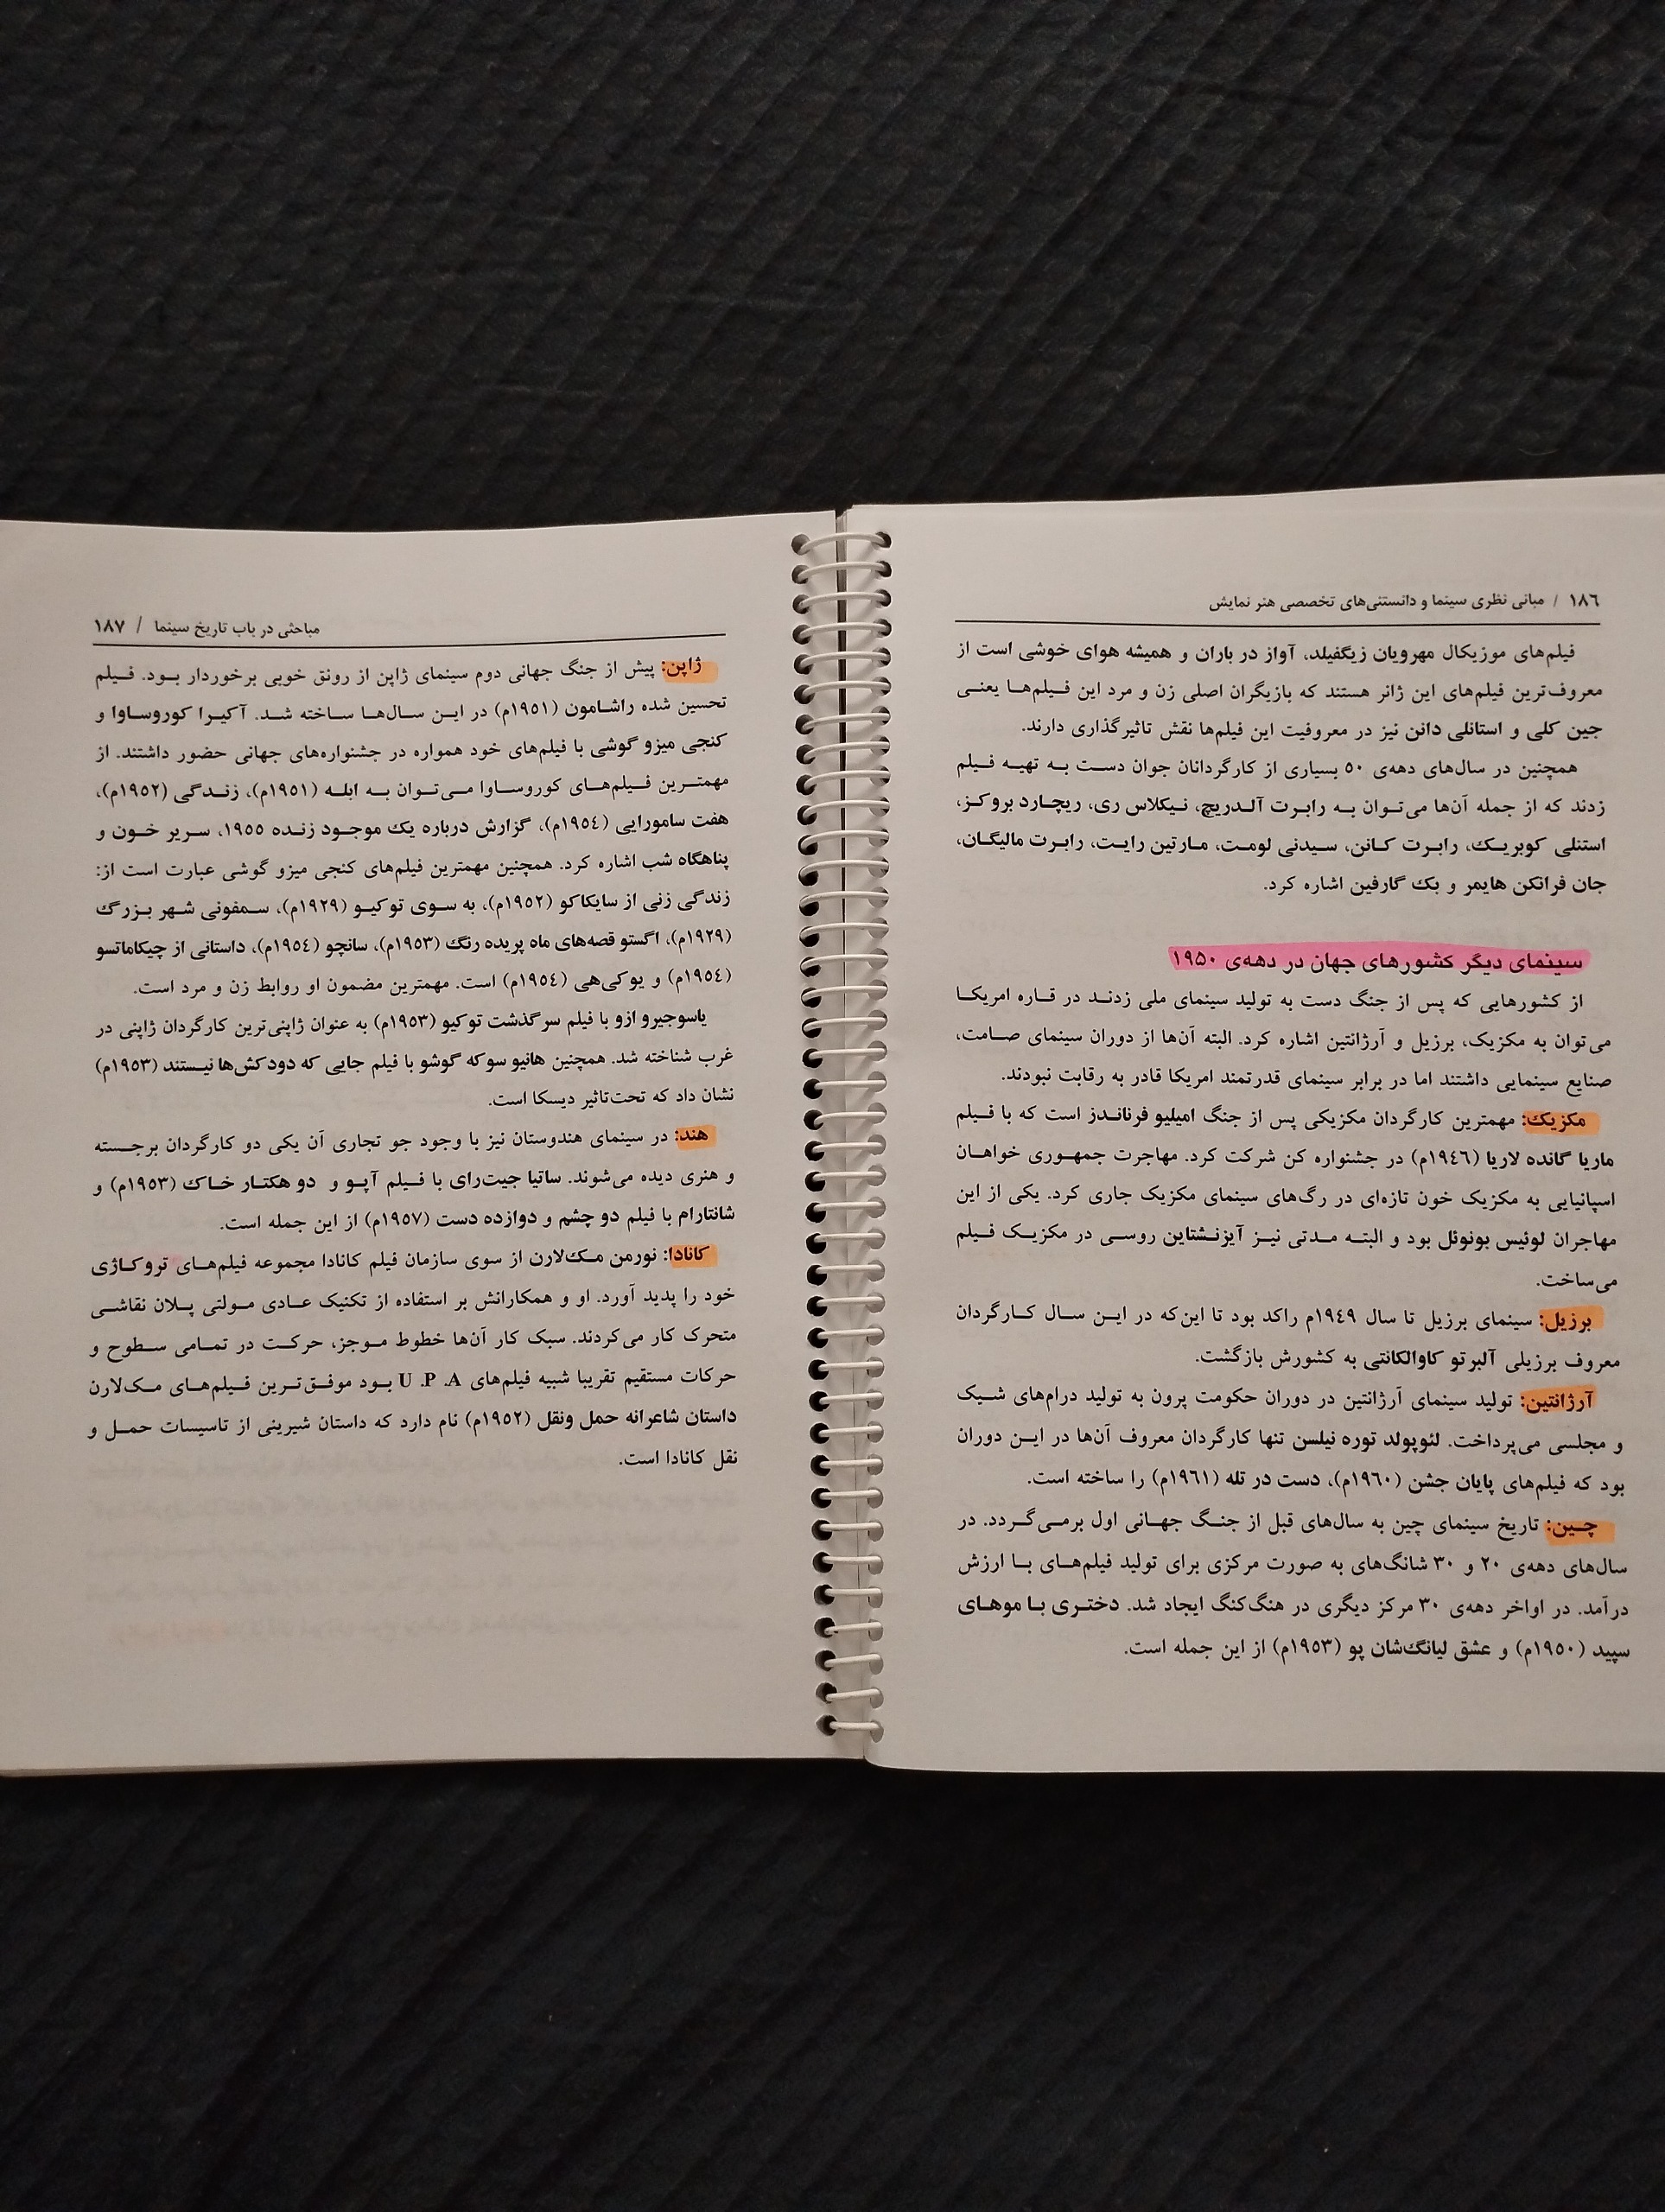 ۱۸۶ / مبانی نظری سینما و دانستنی‌های تخصصی هنر نمایش
فیلم‌های موزیکال مهرویان زیگفیلد، آواز در باران و همیشه هوای خوشی است از
معروف‌ترین فیلم‌های این ژانر هستند که بازیگران اصلی زن و مرد این فیلم‌ها یعنی
جین کلی و استانلی دانن نیز در معروفیت این فیلم‌ها نقش تاثیرگذاری دارند.
همچنین در سال‌های دهه‌ی ۵۰ بسیاری از کارگردانان جوان دست به تهیه فیلم
زدند که از جمله آن‌ها می‌توان به رابرت آلدریچ، نیکلاس ری، ریچارد بروکز،
استنلی کوبریک، رابرت کانن، سیدنی لومت، مارتین رایت، رابرت مالیگان،
جان فرانکن هایمر و بک گارفین اشاره کرد.
سینمای دیگر کشورهای جهان در دهه‌ی ۱۹۵۰
از کشورهایی که پس از جنگ دست به تولید سینمای ملی زدند در قاره امریکا
می‌توان به مکزیک، برزیل و آرژانتین اشاره کرد. البته آن‌ها از دوران سینمای صامت،
صنایع سینمایی داشتند اما در برابر سینمای قدرتمند امریکا قادر به رقابت نبودند.
مکزیک: مهمترین کارگردان مکزیکی پس از جنگ امیلیو فرناندز است که با فیلم
ماریا گانده لاریا (۱۹۴۶م) در جشنواره کن شرکت کرد. مهاجرت جمهوری خواهان
اسپانیایی به مکزیک خون تازه‌ای در رگ‌های سینمای مکزیک جاری کرد. یکی از این
مهاجران لوئیس بونوئل بود و البته مدتی نیز آیزنشتاین روسی در مکزیک فیلم
می‌ساخت.
برزیل: سینمای برزیل تا سال ۱۹۴۹م راکد بود تا این‌که در این سال کارگردان
معروف برزیلی آلبرتو کاوالکانتی به کشورش بازگشت.
آرژانتین: تولید سینمای آرژانتین در دوران حکومت پرون به تولید درام‌های شیک
و مجلسی می‌پرداخت. لئوپولد توره نیلسن تنها کارگردان معروف آن‌ها در این دوران
بود که فیلم‌های پایان جشن (۱۹۶۰م)، دست در تله (۱۹۶۱م) را ساخته است.
چین: تاریخ سینمای چین به سال‌های قبل از جنگ جهانی اول برمی‌گردد. در
سال‌های دهه‌ی ۲۰ و ۳۰ شانگ‌های به صورت مرکزی برای تولید فیلم‌های با ارزش
درآمد. در اواخر دهه‌ی ۳۰ مرکز دیگری در هنگ‌کنگ ایجاد شد. دختری با موهای
سپید (۱۹۵۰م) و عشق لیانگ‌شان پو (۱۹۵۳م) از این جمله است.
مباحثی در باب تاریخ سینما / ۱۸۷
ژاپن: پیش از جنگ جهانی دوم سینمای ژاپن از رونق خوبی برخوردار بود. فیلم
تحسین شده راشامون (۱۹۵۱م) در این سال‌ها ساخته شد. آکیرا کوروساوا و
کنجی میزو گوشی با فیلم‌های خود همواره در جشنواره‌های جهانی حضور داشتند. از
مهمترین فیلم‌های کوروساوا می‌توان به ابله (۱۹۵۱م)، زندگی (۱۹۵۲م)،
هفت سامورایی (۱۹۵۴م)، گزارش درباره یک موجود زنده ۱۹۵۵، سریر خون و
پناهگاه شب اشاره کرد. همچنین مهمترین فیلم‌های کنجی میزو گوشی عبارت است از:
زندگی زنی از سایکاکو (۱۹۵۲م)، به سوی توکیو (۱۹۲۹م)، سمفونی شهر بزرگ
(۱۹۲۹م)، اگستو قصه‌های ماه پریده رنگ (۱۹۵۳م)، سانچو (۱۹۵۴م)، داستانی از چیکاماتسو
(۱۹۵۴م) و یوکی‌هی (۱۹۵۴م) است. مهمترین مضمون او روابط زن و مرد است.
یاسوجیرو ازو با فیلم سرگذشت توکیو (۱۹۵۳م) به عنوان ژاپنی‌ترین کارگردان ژاپنی در
غرب شناخته شد. همچنین هانیو سوکه گوشو با فیلم جایی که دودکش‌ها نیستند (۱۹۵۳م)
نشان داد که تحت‌تاثیر دیسکا است.
هند: در سینمای هندوستان نیز با وجود جو تجاری آن یکی دو کارگردان برجسته
و هنری دیده می‌شوند. ساتیا جیت‌رای با فیلم آپو و دو هکتار خاک (۱۹۵۳م) و
شانتارام با فیلم دو چشم و دوازده دست (۱۹۵۷م) از این جمله است.
کانادا: نورمن مک‌لارن از سوی سازمان فیلم کانادا مجموعه فیلم‌های تروکاژی
خود را پدید آورد. او و همکارانش بر استفاده از تکنیک عادی مولتی پلان نقاشی
متحرک کار می‌کردند. سبک کار آن‌ها خطوط موجز، حرکت در تمامی سطوح و
حرکات مستقیم تقریبا شبیه فیلم‌های U .P .A بود موفق‌ترین فیلم‌های مک‌لارن
داستان شاعرانه حمل ونقل (۱۹۵۲م) نام دارد که داستان شیرینی از تاسیسات حمل و
نقل کانادا است.